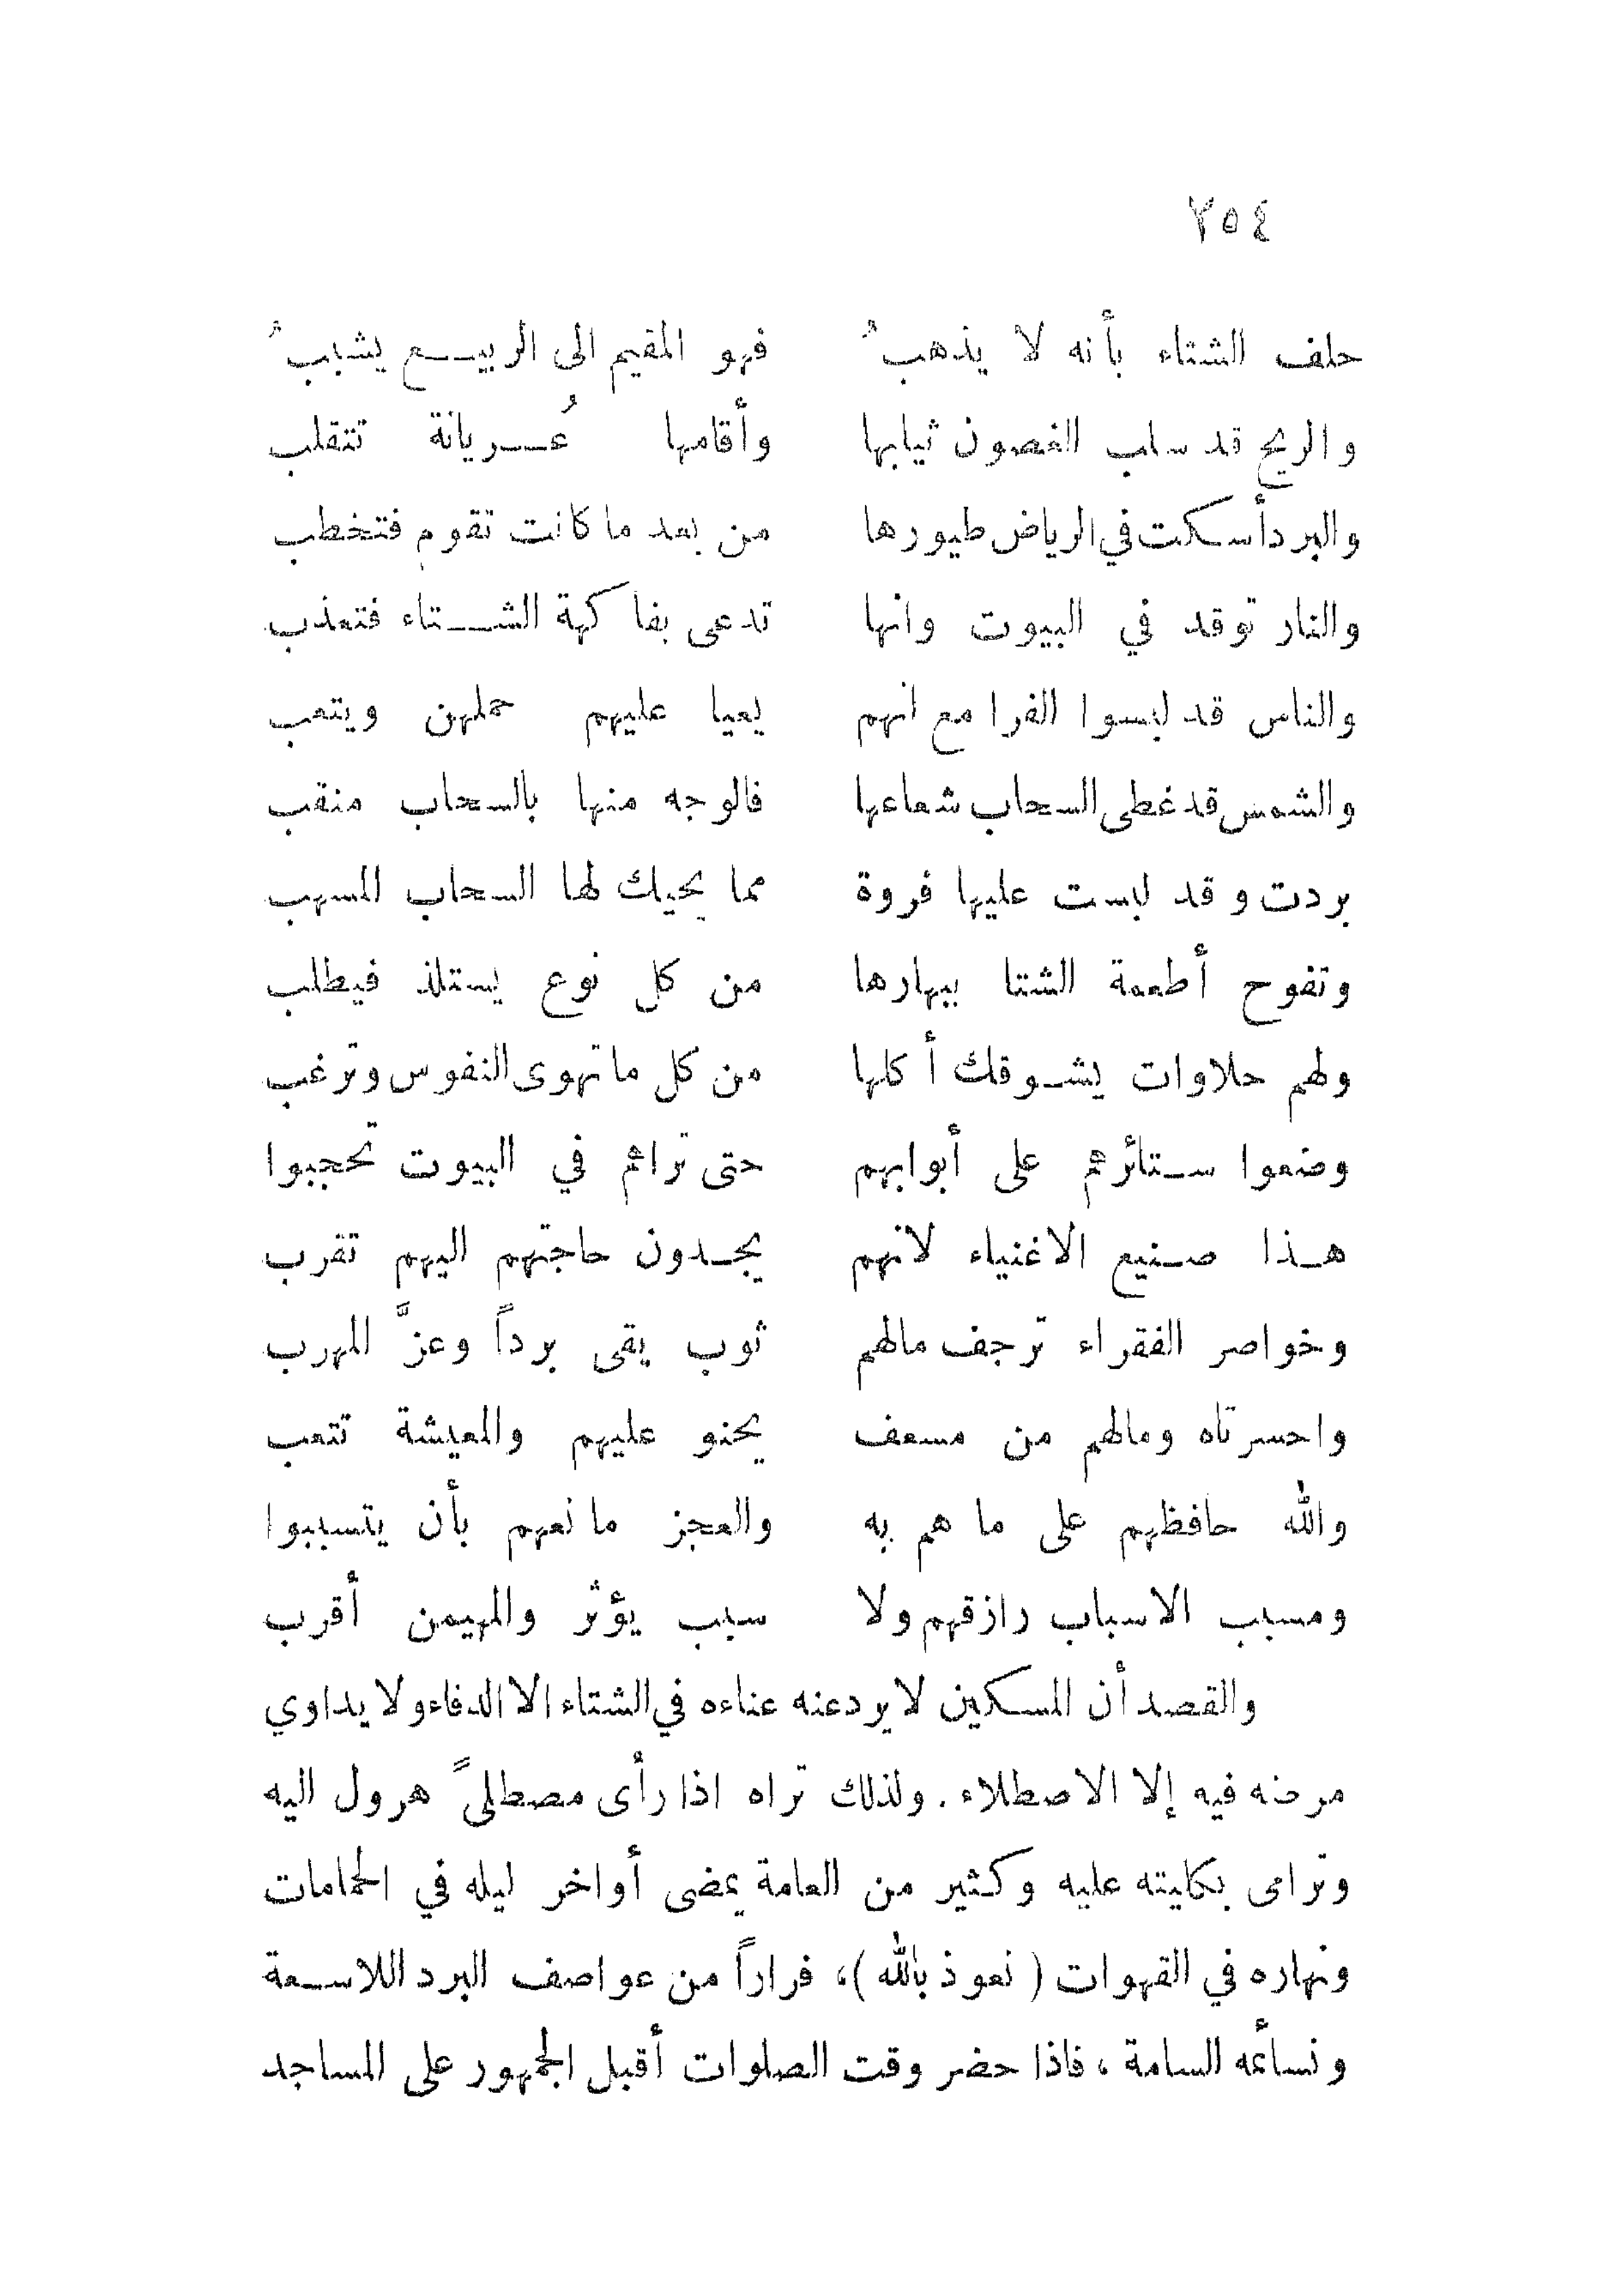 ٢٥٤
حلف الشتاء بأنه لا يذهبُ فهو المقيم الى الربيع يشببُ
والريح قد سلب الغصون ثيابها وأقامها عُريانة تتقلب
والبرد أسكت في الرياض طيورها من بعد ما كانت تقوم فتخطب
والنار توقد في البيوت وانها تدعى بفاكهة الشتاء فتعذب
والناس قد لبسوا الفرا مع انهم يعيا عليهم حملهن ويتعب
والشمس قد غطى السحاب شعاعها فالوجه منها بالسحاب منقب
بردت وقد لبست عليها فروة مما يحيك لها السحاب المسهب
وتفوح أطعمة الشتا ببهارها من كل نوع يستلذ فيطلب
ولهم حلاوات يشوقك أكلها من كل ما تهوى النفوس وترغب
وضعوا ستائرهم على أبوابهم حتى تراهم في البيوت تحجبوا
هذا صنيع الاغنياء لانهم يجدون حاجتهم اليهم تقرب
وخواصر الفقراء ترجف مالهم ثوب يقى برداً وعزَّ المهرب
واحسرتاه ومالهم من مسعف يحنو عليهم والمعيشة تتعب
والله حافظهم على ما هم به والعجز مانعهم بأن يتسببوا
ومسبب الاسباب رازقهم ولا سبب يؤثر والمهيمن أقرب
والقصد أن المسكين لا يردعنه عناءه في الشتاء الا الدفاء ولا يداوي
مرضه فيه إلا الاصطلاء. ولذلك تراه اذا رأى مصطلىً هرول اليه
وترامى بكليته عليه وكثير من العامة يمضى أواخر ليله في الحمامات
ونهاره في القهوات (نعوذ بالله)، فراراً من عواصف البرد اللاسعة
ونسائمه السامة، فاذا حضر وقت الصلوات أقبل الجمهور على المساجد